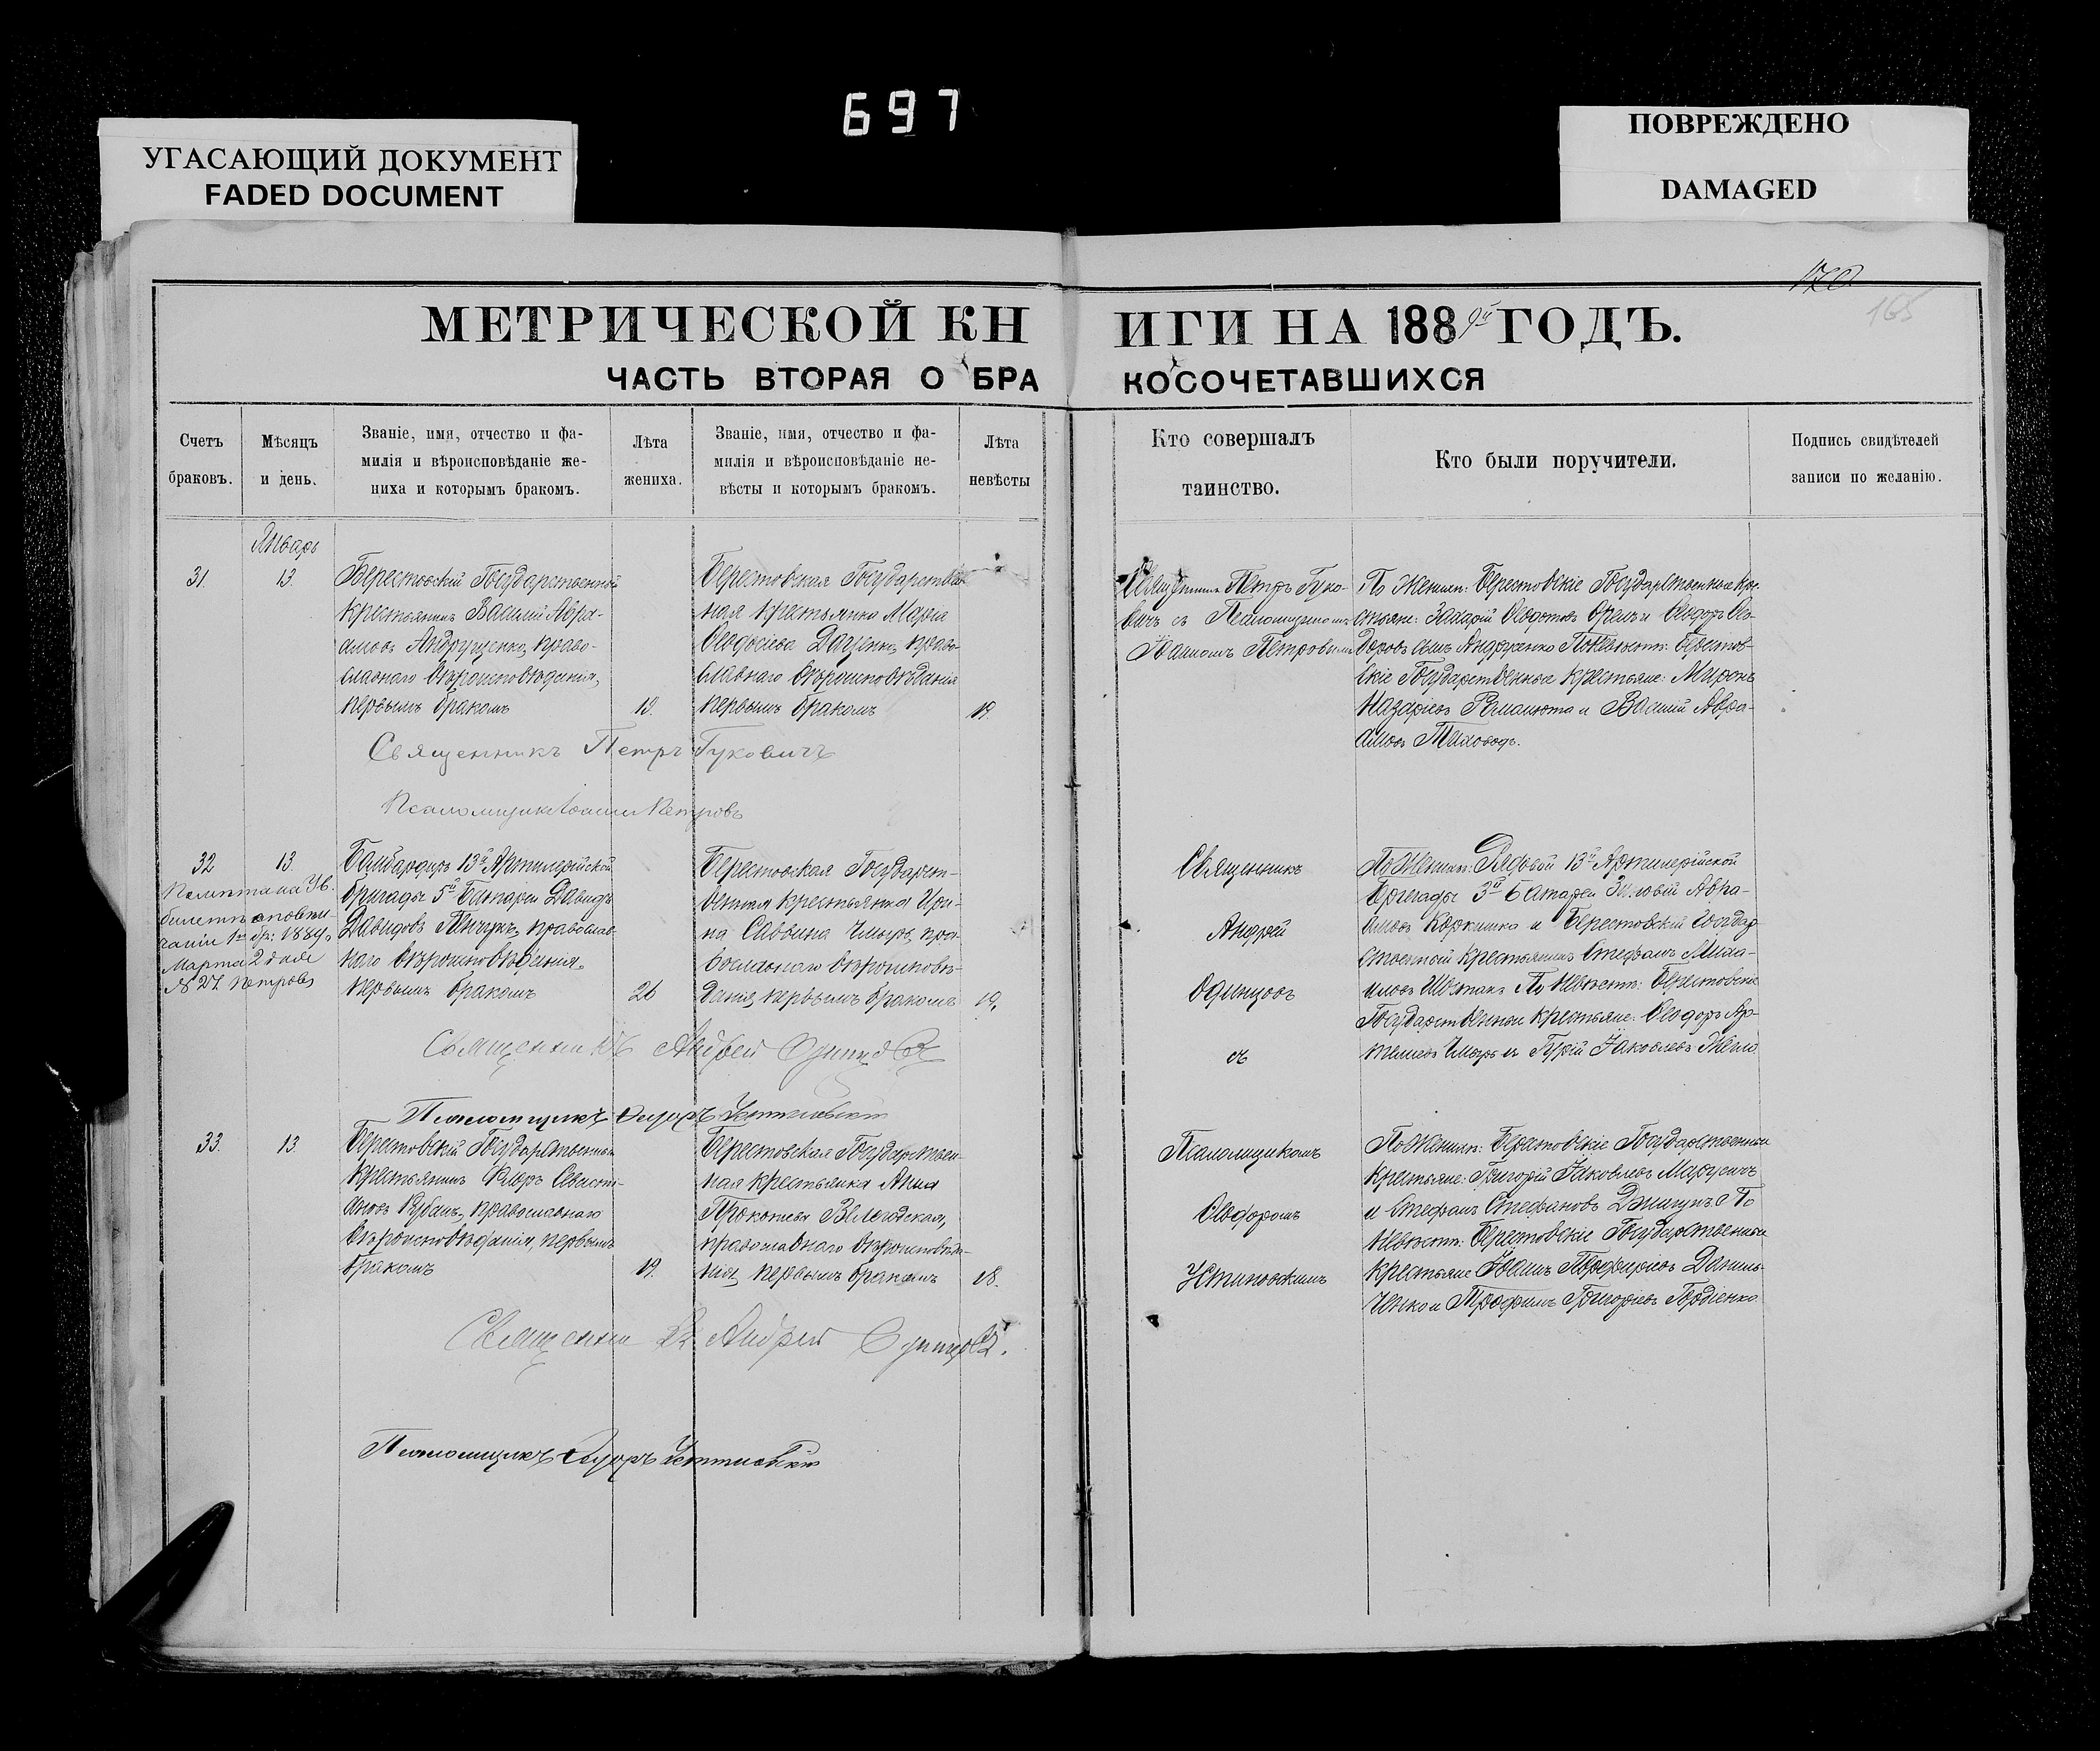 697
УГАСАЮЩИЙ ДОКУМЕНТ
FADED DOCUMENT
ПОВРЕЖДЕНО
DAMAGED
170
165
МЕТРИЧЕСКОЙ КНИГИ НА 1889й ГОДЪ.
ЧАСТЬ ВТОРАЯ О БРАКОСОЧЕТАВШИХСЯ
Счетъ
браковъ.
Мѣсяцъ
и день.
Званіе, имя, отчество и фа-
милія и вѣроисповѣданіе же-
ниха и которымъ бракомъ.
Лѣта
жениха.
Званіе, имя, отчество и фа-
милія и вѣроисповѣданіе не-
вѣсты и которымъ бракомъ.
Лѣта
невѣсты
Кто совершалъ
таинство.
Кто были поручители.
Подпись свидѣтелей
записи по желанію.
Январь
31.
13.
Берестовскій Государственный
крестьянинъ Василій Авра-
амовъ Андрущенко, право-
славнаго вѣроисповѣданія,
первымъ бракомъ
19.
Берестовская Государствен-
ная крестьянка Марія
Ѳеодосіева Даценко, право-
славнаго вѣроисповѣданія
первымъ бракомъ
19.
Священникъ Петръ Гуко-
вичъ съ Псаломщикомъ
Іоанномъ Петровымъ
По женихѣ: Берестовскіе Государственные кре-
стьяне: Захарій Ѳедотовъ и Ѳеодоръ Ѳео-
доровъ сынъ Андрущенко По невѣстѣ: Берестов-
скіе Государственные крестьяне: Миронъ
Назаріевъ и Василій Авра-
амовъ Тиховодъ.
Священникъ Петръ Гуковичъ
Псаломщикъ Іоаннъ Петровъ
32
13.
билетъ о повѣн-
чаніи 1889
Марта 2 дня
№ 27. Петровъ
Бамбардиръ 13й Артилерійской
бригады 5й Батареи Давидъ
Давидовъ Пинчукъ, православ-
наго вѣроисповѣданія.
первымъ бракомъ
26
Берестовская Государст-
венная крестьянка Ири-
на Саввина Чмырь, пра-
вославнаго вѣроисповѣ-
данія, первымъ бракомъ
19.
Священникъ
Андрей
Одинцовъ
съ
По женихѣ: Рядовой 13й Артилерійской
Бригады 3й Батареи Зиновій Авра-
амовъ и Берестовскій Государ-
ственный крестьянинъ Стефанъ Миха-
иловъ По невѣстѣ: Берестовскіе
Государственные крестьяне: Ѳеодоръ Ар-
темовъ Чмырь и Гурій Іаковлевъ
Священникъ Андрей Одинцовъ
Псаломщикъ Ѳеодоръ Устиновскій
33.
13.
Берестовскій Государственный
крестьянинъ Севасті-
ановъ Кубанъ, православнаго
вѣроисповѣданія, первымъ
бракомъ
19.
Берестовская Государствен-
ная крестьянка Анна
Прокопіева Вилегодская,
православнаго вѣроисповѣда-
нія, первымъ бракомъ
18.
Псаломщикомъ
Ѳеодоромъ
Устиновскимъ
По женихѣ: Берестовскіе Государственные
крестьяне: Григорій Іаковлевъ
и Стефанъ Стефановъ По
невѣстѣ: Берестовскіе Государственные
крестьяне Іоаннъ Порфиріевъ Даниль-
ченко и Трофимъ Григоріевъ Гордіенко
Священникъ Андрей Одинцовъ.
Псаломщикъ Ѳеодоръ Устиновскій